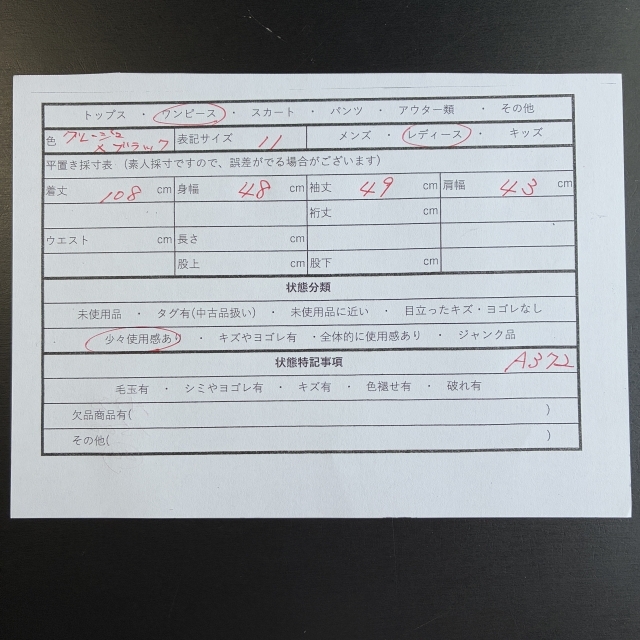 トップス ・ ワンピース ・ スカート ・ パンツ ・ アウター類 ・ その他
色 グレー系 × ブラック 表記サイズ 11 メンズ ・ レディース ・ キッズ
平置き採寸表 (素人採寸ですので、誤差がでる場合がございます)
着丈 108 cm 身幅 48 cm 袖丈 49 cm 肩幅 43 cm
裄丈 cm
ウエスト cm 長さ cm
股上 cm 股下 cm
状態分類
未使用品 ・ タグ有(中古品扱い) ・ 未使用品に近い ・ 目立ったキズ・ヨゴレなし
少々使用感あり ・ キズやヨゴレ有 ・全体的に使用感あり ・ ジャンク品
状態特記事項 A372
毛玉有 ・ シミやヨゴレ有 ・ キズ有 ・ 色褪せ有 ・ 破れ有
欠品商品有( )
その他( )